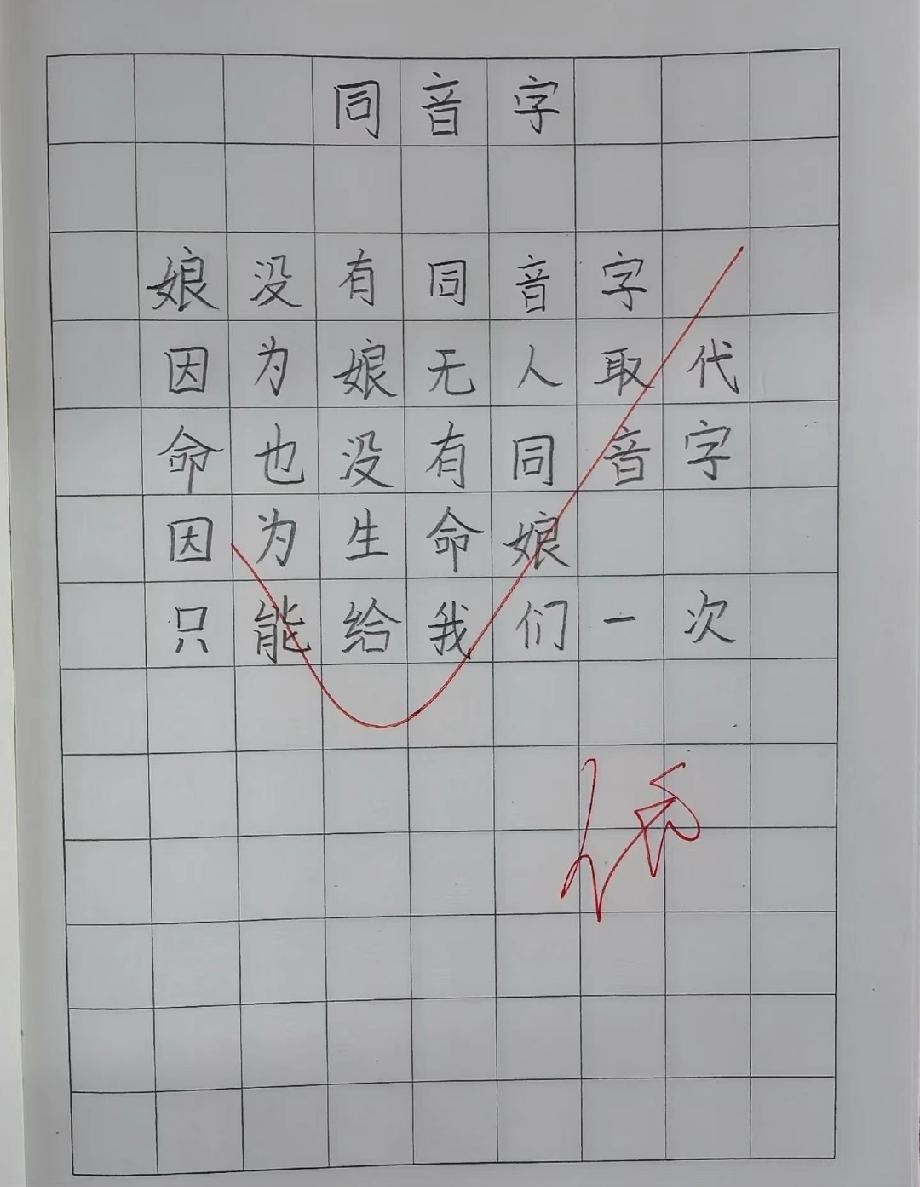 同音字
娘没有同音字
因为娘无人取代
命也没有同音字
因为生命娘
只能给我们一次